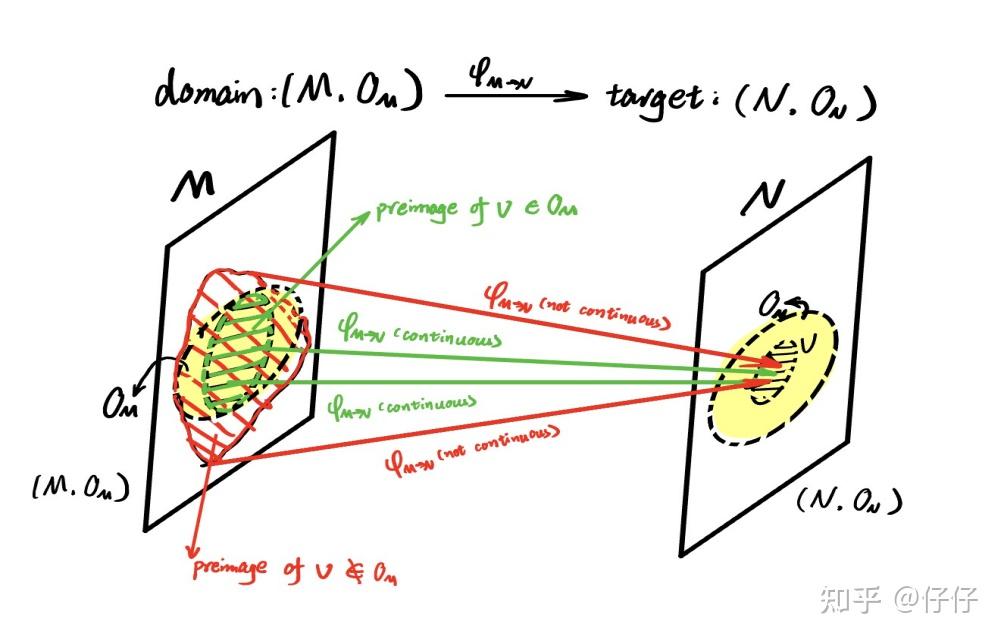 domain:(M.Oₘ) φM→N target:(N.O_N)
M
N
preimage of V ∈ Oₘ
φM→N (not continuous)
O_N
V
φM→N (continuous)
φM→N (continuous)
Oₘ
φM→N (not continuous)
(M.Oₘ)
(N.O_N)
preimage of V ∉ Oₘ
知乎 @仔仔